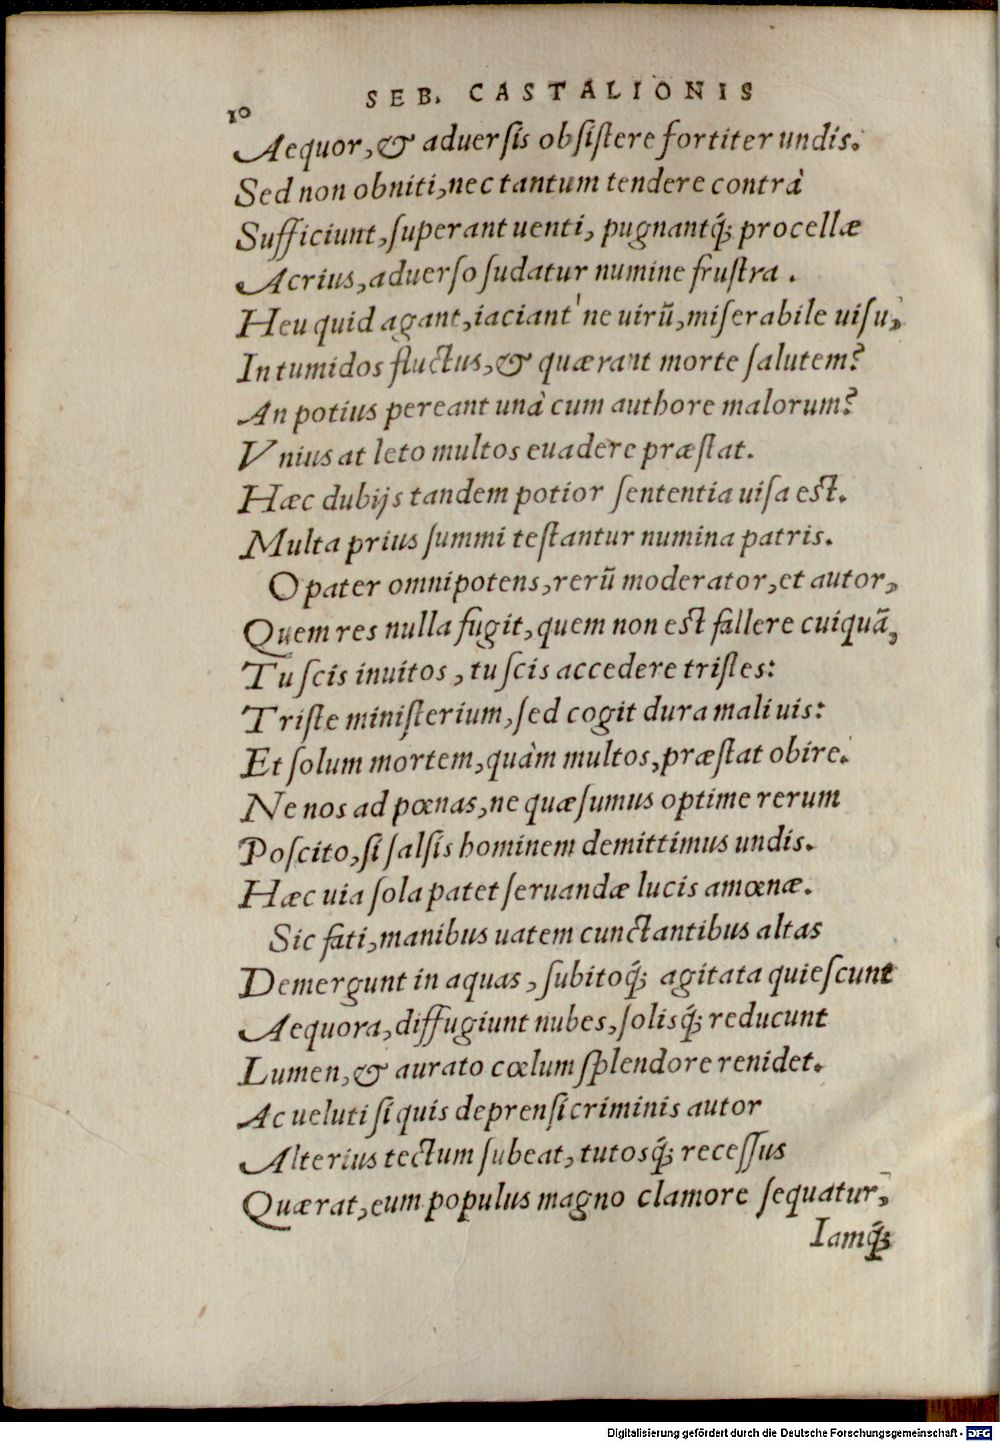 10 SEB. CASTALIONIS
Aequor, & aduersis obsistere fortiter undis.
Sed non obniti, nec tantum tendere contrà
Sufficiunt, superant uenti, pugnantq́; procellæ
Acrius, aduerso sudatur numine frustra.
Heu quid agant, iaciant'ne uirũ, miserabile uisu,
In tumidos fluctus, & quærant morte salutem?
An potius pereant unà cum authore malorum?
Vnius at leto multos euadere præstat.
Hæc dubijs tandem potior sententia uisa est.
Multa prius summi testantur numina patris.
O pater omnipotens, rerũ moderator, et autor,
Quem res nulla fugit, quem non est fallere cuiquã,
Tu scis inuitos, tu scis accedere tristes:
Triste ministerium, sed cogit dura mali uis:
Et solum mortem, quàm multos, præstat obire.
Ne nos ad pœnas, ne quæsumus optime rerum
Poscito, si salsis hominem demittimus undis.
Hæc uia sola patet seruandæ lucis amœnæ.
Sic fati, manibus uatem cunctantibus altas
Demergunt in aquas, subitoq́; agitata quiescunt
Aequora, diffugiunt nubes, solisq́; reducunt
Lumen, & aurato cœlum splendore renidet.
Ac ueluti si quis deprensi criminis autor
Alterius tectum subeat, tutosq́; recessus
Quærat, eum populus magno clamore sequatur,
Iamq́;
Digitalisierung gefördert durch die Deutsche Forschungsgemeinschaft - DFG